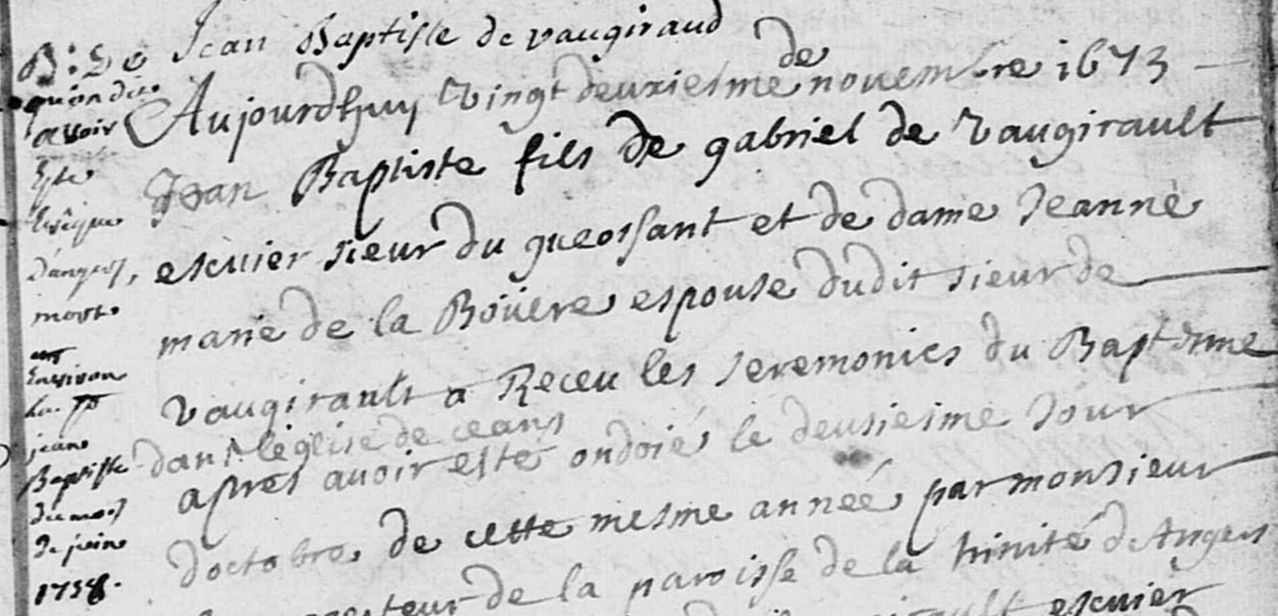 B: de Jean Baptiste de vaugiraud
Aujourdhuy vingt deuxiesme de novembre 1673
Jean Baptiste fils de gabriel de Vaugirault
escuier sieur du gueossant et de dame Jeanne
marie de la Boüere espouse dudit sieur de
vaugirault a Receu les seremonies du Baptesme
dans leglise de ceans
apres avoir esté ondoié le deusiesme Jour
doctobre de cette mesme anneé par monsieur
de la paroisse de la trinité dAngers
escuier
qu'on dit
avoir
Esté
Evêque
D'angers,
mort
Environ
la St
jean
Baptiste
du mois
de juin
1758.